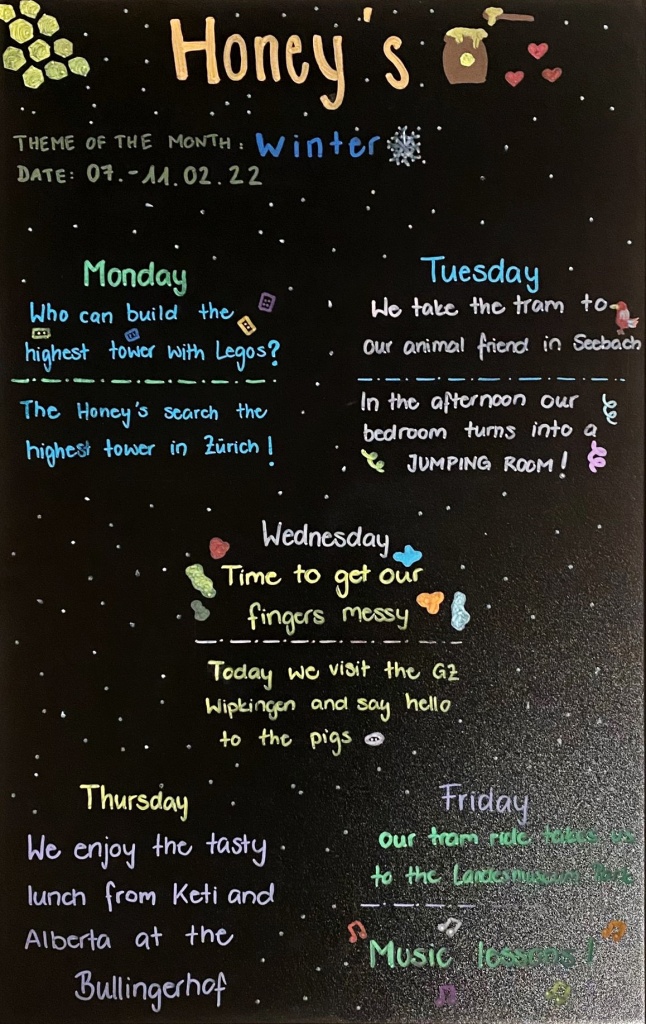 Honey's
THEME OF THE MONTH: Winter
DATE: 07.-11.02.22
Monday
Who can build the
highest tower with Legos?
The Honey's search the
highest tower in Zürich!
Tuesday
We take the tram to
our animal friend in Seebach
In the afternoon our
bedroom turns into a
JUMPING ROOM!
Wednesday
Time to get our
fingers messy
Today we visit the GZ
Wipkingen and say hello
to the pigs
Thursday
We enjoy the tasty
lunch from Keti and
Alberta at the
Bullingerhof
Friday
Our tram ride takes us
to the Landesmuseum Park
Music lessons!